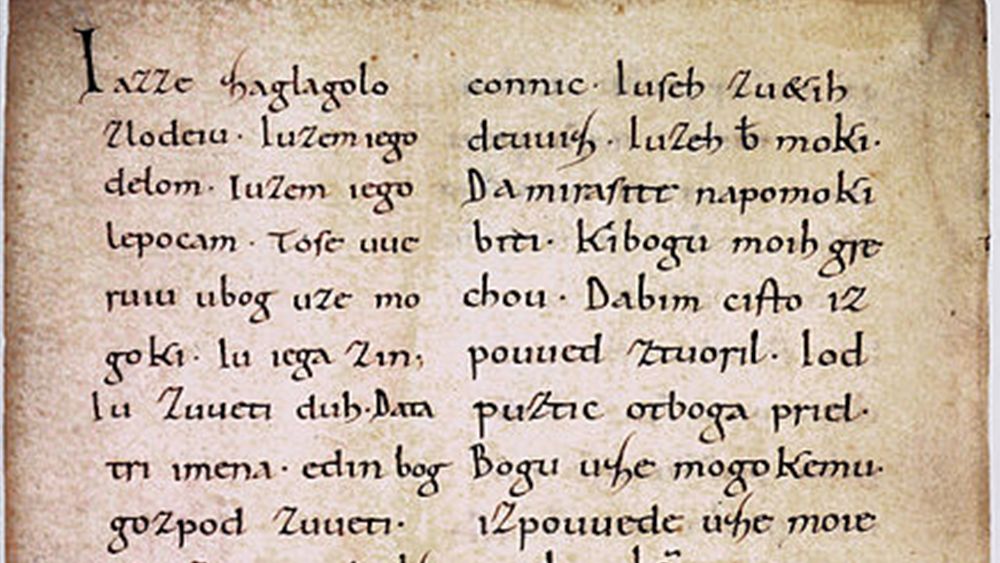 Iazze zaglagolo
Zlodeiu. Iuzem iego
delom. Iuzem iego
lepocam. Tose uue
ruiu ubog uze mo
goki. Iu iega Zin;
Iu Zuueti duh. Data
tri imena. edin bog
gozpod Zuueti.
connic. Iuseh Zu&ih
deuuiz. Iuzeh moki.
Damirasite napomoki
biti. Kibogu moih gre
chou. Dabim cisto iz
pouued ztuoril. Iod
puztic otboga priel.
Bogu uze mogokemu.
izpouuede uze moie